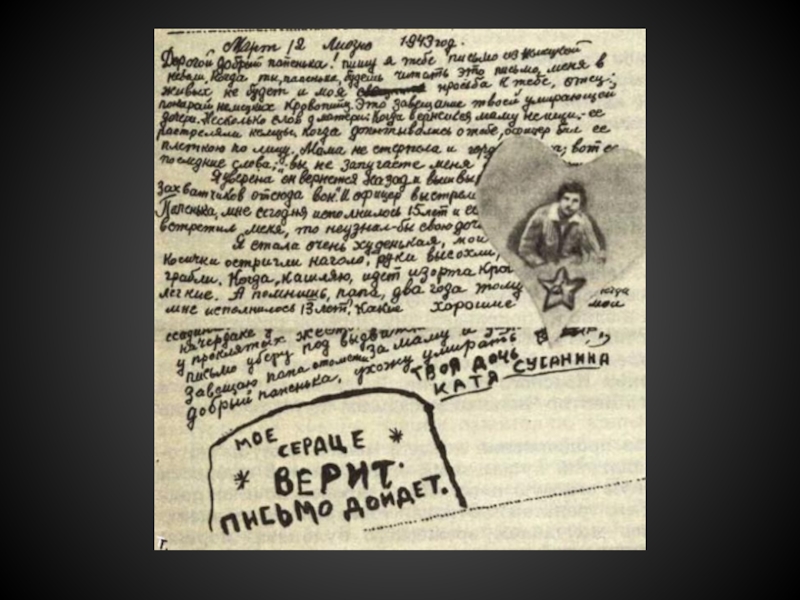 Март 12 Лиозно 1943 год.
Дорогой, добрый папенька! пишу я тебе письмо из немецкой
неволи. Когда ты, папенька, будешь читать это письмо, меня в
живых не будет и моя просьба к тебе, отец:
покарай немецких кровопийц. Это завещание твоей умирающей
дочери. Несколько слов о матери: Когда вернешься маму не ищи. ее
расстреляли немцы. когда допытывались о тебе, офицер бил ее
плеткою по лицу. Мама не стерпела и горд а; вот ее
последние слова: вы не запугаете меня
Я уверена он вернется назад и вышвыр
захватчиков отсюда вон. И офицер выстрел
Папенька, мне сегодня исполнилось 15 лет и ес
встретил меня, то неузнал-бы свою доч
Я стала очень худенькая, мои
косички остригли наголо, руки высохли,
грабли. Когда, кашляю, идет изо рта кро
легкие. А помнишь, папа, два года тому когда
мне исполнилось 13 лет? Какие хорошие мои
ссадин
на чердаке у жест
у проклятых
письмо уберу под выдва
Завещаю папа отомсти за маму и
добрый папенька, ухожу умирать
ТВОЯ ДОЧЬ
КАТЯ СУСАНИНА
МОЕ
СЕРДЦЕ
ВЕРИТ.
ПИСЬМО ДОЙДЕТ.